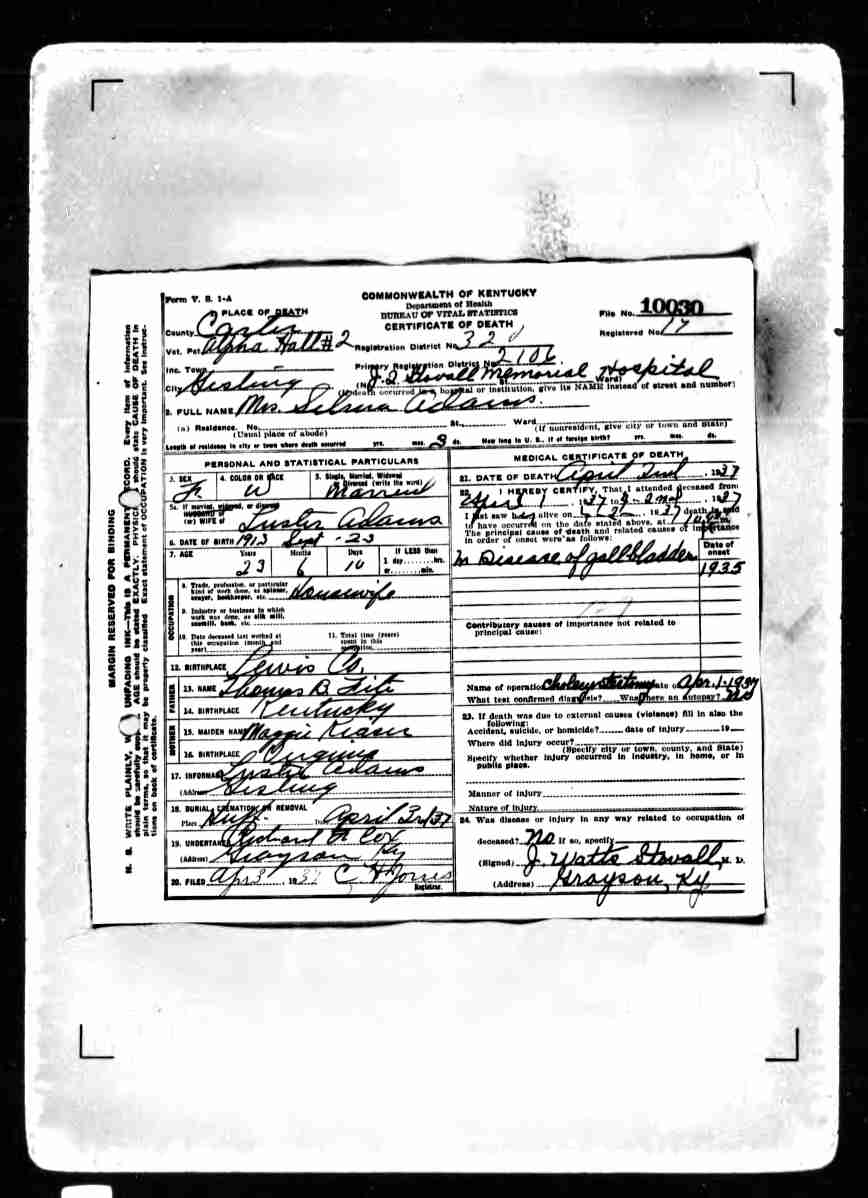 Form V. S. 1-A
COMMONWEALTH OF KENTUCKY
Department of Health
BUREAU OF VITAL STATISTICS
CERTIFICATE OF DEATH
File No. 10030
Registered No. 17
PLACE OF DEATH
County Carter
Vot. Pct Alpha Hall #2
Registration District No. 320
Inc. Town
Primary Registration District No. 2106
City
(No J. Q. Stovall Memorial Hospital St. Ward)
(If death occurred in a hospital or institution, give its NAME instead of street and number)
2. FULL NAME Mrs. Selma Adams.
(a) Residence. No. St., Ward
(Usual place of abode) (If nonresident, give city or town and State)
Length of residence in city or town where death occurred yrs. mos. 3 ds. How long in U. S., if of foreign birth? yrs. mos. ds.
PERSONAL AND STATISTICAL PARTICULARS
3. SEX F. 4. COLOR OR RACE W 5. Single, Married, Widowed or Divorced (write the word) Married
5a. If married, widowed, or divorced
HUSBAND of
(or) WIFE of Luster Adams
6. DATE OF BIRTH 1913 Sept - 23
7. AGE Years 23 Months 6 Days 10 If LESS than 1 day hrs. or min.
OCCUPATION
8. Trade, profession, or particular kind of work done, as spinner, sawyer, bookkeeper, etc. Housewife
9. Industry or business in which work was done, as silk mill, sawmill, bank, etc.
10. Date deceased last worked at this occupation (month and year)
11. Total time (years) spent in this occupation
12. BIRTHPLACE Lewis Co.
FATHER
13. NAME Thomas B. Fite
14. BIRTHPLACE Kentucky
MOTHER
15. MAIDEN NAME Maggie
16. BIRTHPLACE Virginia
17. INFORMANT Luster Adams
(Address)
18. BURIAL, CREMATION OR REMOVAL
Place Date April 3rd 37
19. UNDERTAKER Richard A Cox
(Address) Grayson Ky
20. FILED Apr 3, 1937 C H Jones Registrar.
MEDICAL CERTIFICATE OF DEATH
21. DATE OF DEATH April 2nd, 1937
22. I HEREBY CERTIFY, That I attended deceased from
April 1, 1937 to 2nd, 1937
I last saw h alive on 1937 death is said
to have occurred on the date stated above, at m.
The principal cause of death and related causes of importance
in order of onset were as follows:
Date of onset
Disease of gall bladder 1935
Contributory causes of importance not related to
principal cause:
Name of operation Date of Apr. 1-1937
What test confirmed diagnosis? Was there an autopsy? No
23. If death was due to external causes (violence) fill in also the
following:
Accident, suicide, or homicide? date of injury 19
Where did injury occur?
(Specify city or town, county, and State)
Specify whether injury occurred in industry, in home, or in
public place.
Manner of injury
Nature of injury
24. Was disease or injury in any way related to occupation of
deceased? No If so, specify
(Signed) J. Watts Stovall, M. D.
(Address) Grayson, Ky
MARGIN RESERVED FOR BINDING
N. B. WRITE PLAINLY, UNFADING INK—This is A PERMANENT RECORD. Every item of information
should be carefully AGE should be stated EXACTLY. should state CAUSE OF DEATH in
plain terms, so that it may be properly classified Exact statement of OCCUPATION is very important. See instruc-
tions on back of certificate.